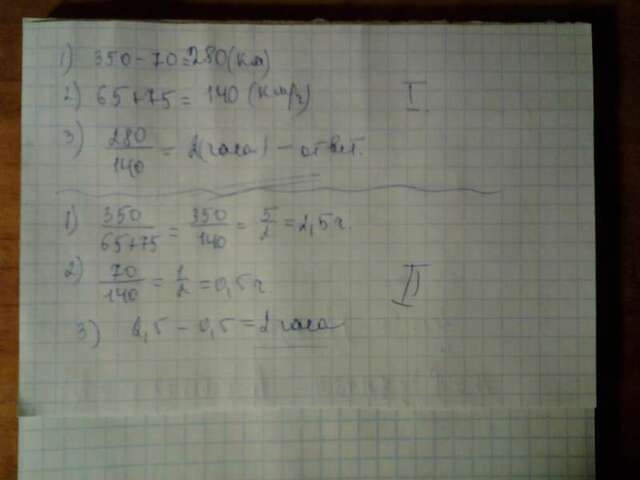 1) 350-70=280(км)
2) 65+75= 140 (км/ч) I
3) 280/140 = 2(часа) - ответ.
1) 350/65+75 = 350/140 = 5/2 = 2,5ч.
2) 70/140 = 1/2 = 0,5ч II
3) 2,5 - 0,5 = 2 часа